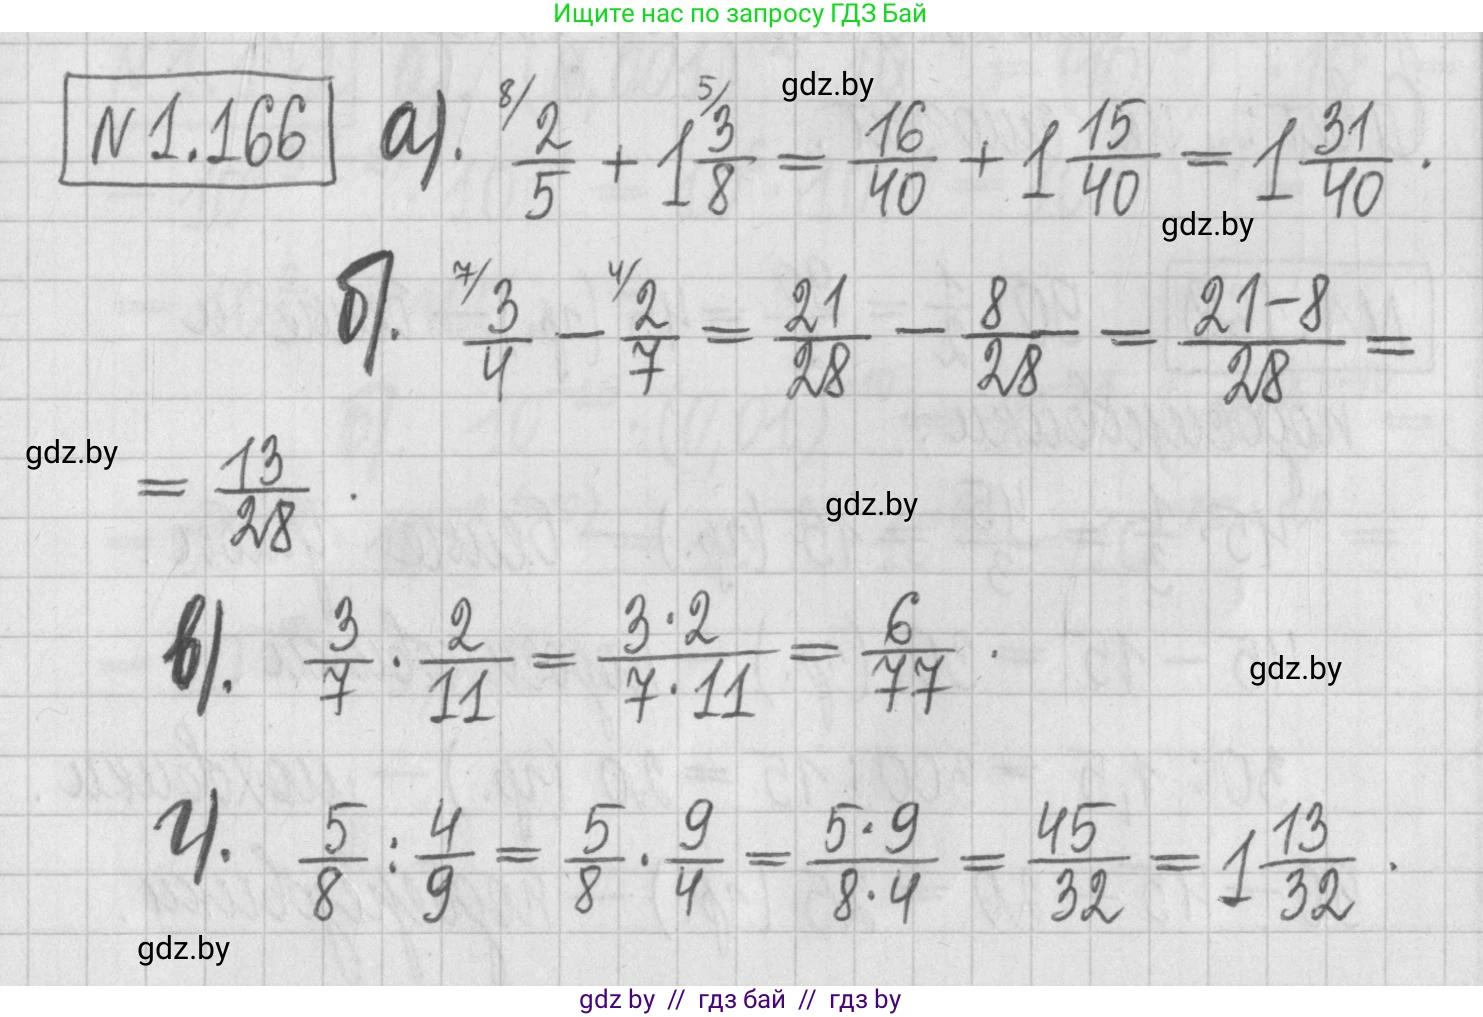 Ищите нас по запросу ГДЗ Бай
N 1.166 а). 8/ 2/5 + 1 5/ 3/8 = 16/40 + 1 15/40 = 1 31/40 .
gdz.by
gdz.by
б). 7/ 3/4 − 4/ 2/7 = 21/28 − 8/28 = 21−8/28 =
gdz.by
= 13/28 .
gdz.by
в). 3/7 · 2/11 = 3·2/7·11 = 6/77 .
gdz.by
г). 5/8 : 4/9 = 5/8 · 9/4 = 5·9/8·4 = 45/32 = 1 13/32 .
gdz.by
gdz by // гдз бай // гдз by